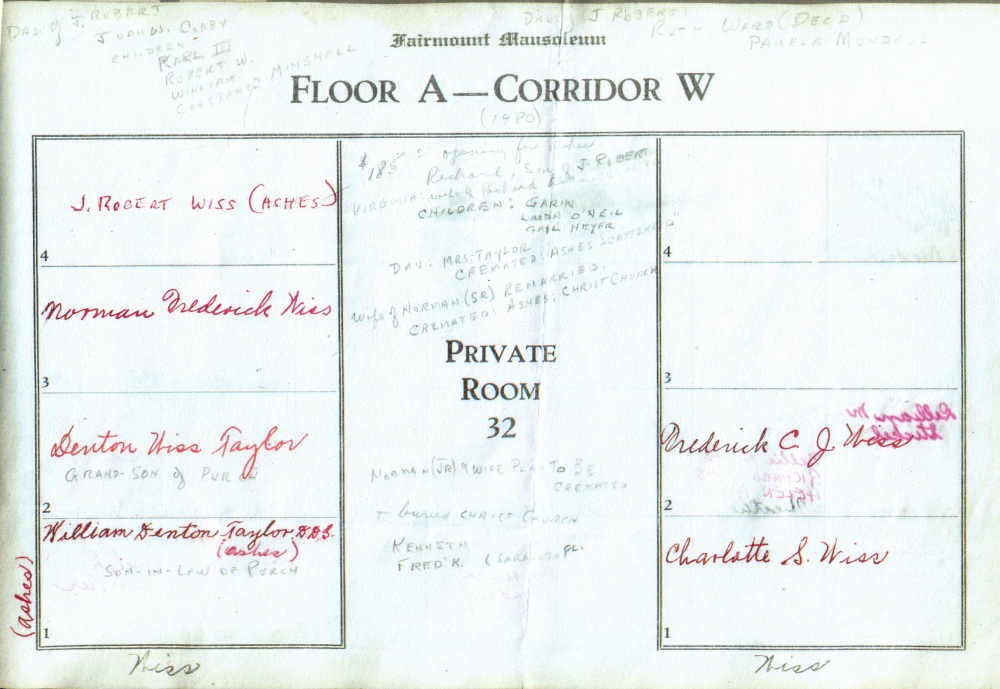 DAU. of J. ROBERT
JOAN W. COBY
CHILDREN:
KARL III
ROBERT W.
WILLIAM
CONSTANCE MINSHALL
DAU. of J ROBERT:
RUTH WARD (DEC'D)
PAMELA MUNDALL
Fairmount Mausoleum
FLOOR A—CORRIDOR W
(1980)
J. ROBERT WISS (ASHES)
4
Norman Frederick Wiss
3
Denton Wiss Taylor
GRAND-SON of PURCH
2
William Denton Taylor D.D.S.
(ashes)
SON-IN-LAW OF PURCH
(ashes)
1
Wiss
$185 opening for ashes
Richard, Son of J. ROBERT
VIRGINIA: wife of Richard
CHILDREN: GARIN
LINDA O'NEIL
GAIL HEYER
DAU: MRS. TAYLOR
CREMATED: ASHES SCATTERED
Wife of NORMAN (SR) REMARRIED.
CREMATED: ASHES: CHRIST CHURCH
PRIVATE
ROOM
32
NORMAN (JR) & WIFE PLAN TO BE
CREMATED
& buried CHRIST CHURCH
KENNETH
FRED'K. (SARASOTA FL.
4
3
Frederick C. J. Wiss
2
Charlotte S. Wiss
1
Wiss